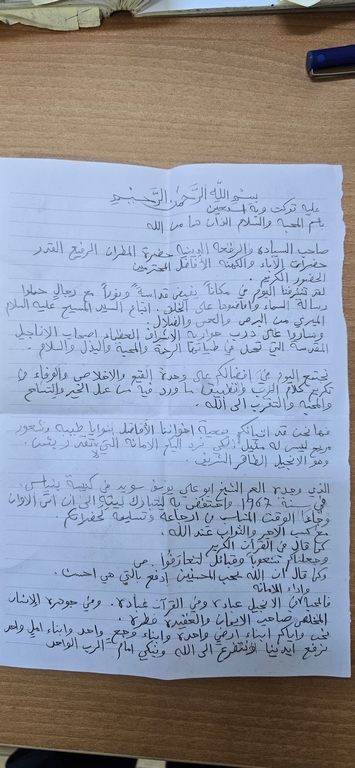 بسم الله الرحمن الرحيم
عليه توكلت وبه استعين
باسم المحبة والسلام اللذان هما من الله
صاحب السيادة والرفعة الدينية حضرة المطران الرفيع القدر
حضرات الآباء والكهنة الأفاضل المحترمين
الحضور الكريم
لقد تشرفنا اليوم في مكاناً يفيض قداسة ونوراً مع رجال حملوا
رسالة السماء وأفاضوها على الخلق. اتباع السيد المسيح عليه السلام
المبرئ من البرص والعمى والضلال.
وساروا على درب حوارييه الأشراف العظماء أصحاب الأناجيل
المقدسة التي تحمل في طياتها الرحمة والمحبة والبذل والسلام.
نجتمع اليوم في على وحدة القيم والإخلاص والوفاء في
تكريم كلام الرب وتطبيق ما ورد فيه من عمل الخير والتسامح
والمحبة والتقرب إلى الله.
فها نحن قد أتيناكم بمعية اخواننا الأفاضل بنوايا طيبة وشعور
مريح ليس له مثيل لكي نرد اليكم الأمانة التي لا تقدر بثمن.
وهو الإنجيل الطاهر الشريف.
الذي وجده العم الشيخ أبو علي يوسف سويد في كنيسة بنابلس
في سنة 1967 واحتفظ به ليتبارك ببيته إلى أن أتى الأوان
وجاء الوقت المناسب من ارجاعه وتسليمه لحضراتكم.
مع كسب الأجر والثواب عند الله.
كما قال في القرآن الكريم
وجعلناكم شعوباً وقبائل لتعارفوا. ص
وكما قال ان الله يحب المحسنين ادفع بالتي هي أحسن.
وأداء الأمانة
فالمحبة في الإنجيل عبادة وفي القرآن عبادة. وفي جوهر الإنسان
المخلص صاحب الايمان والعقيدة فطرة.
نحن واياكم أبناء أرض واحدة وأبناء وجع واحد وأبناء أمل واحد
نرفع أيدينا لنتضرع الى الله ونبكي أمام الرب الواحد